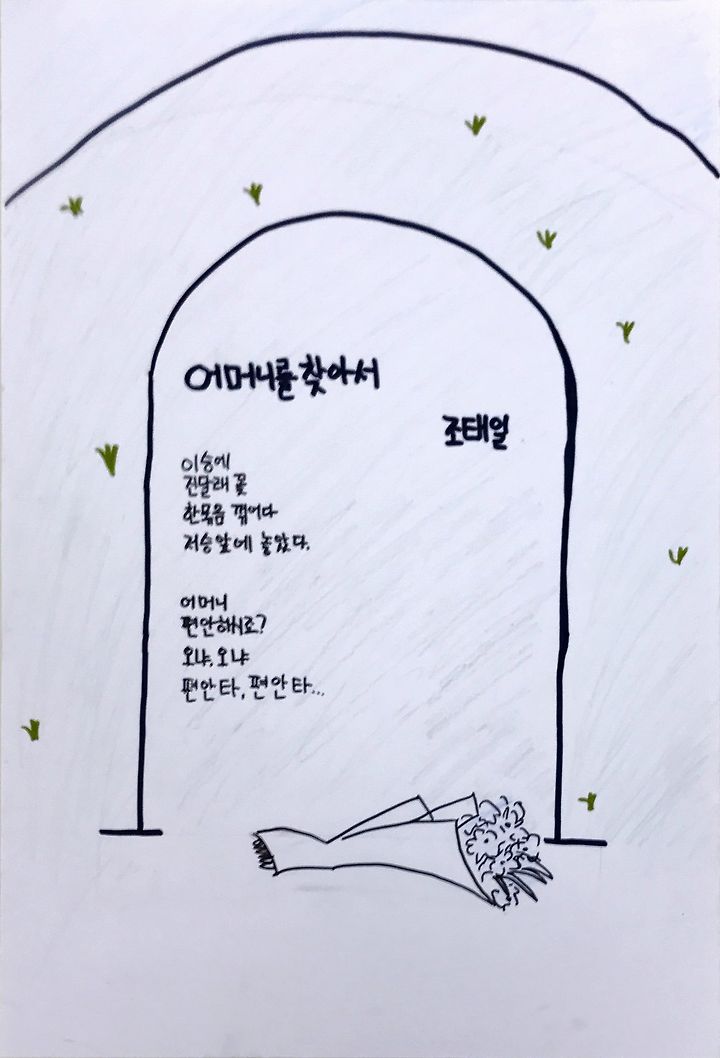 어머니를 찾아서
조태일
이승에
진달래 꽃
한묶음 꺾어다
저승앞에 놓았다.
어머니
편안하시죠?
오냐, 오냐
편안타, 편안타...